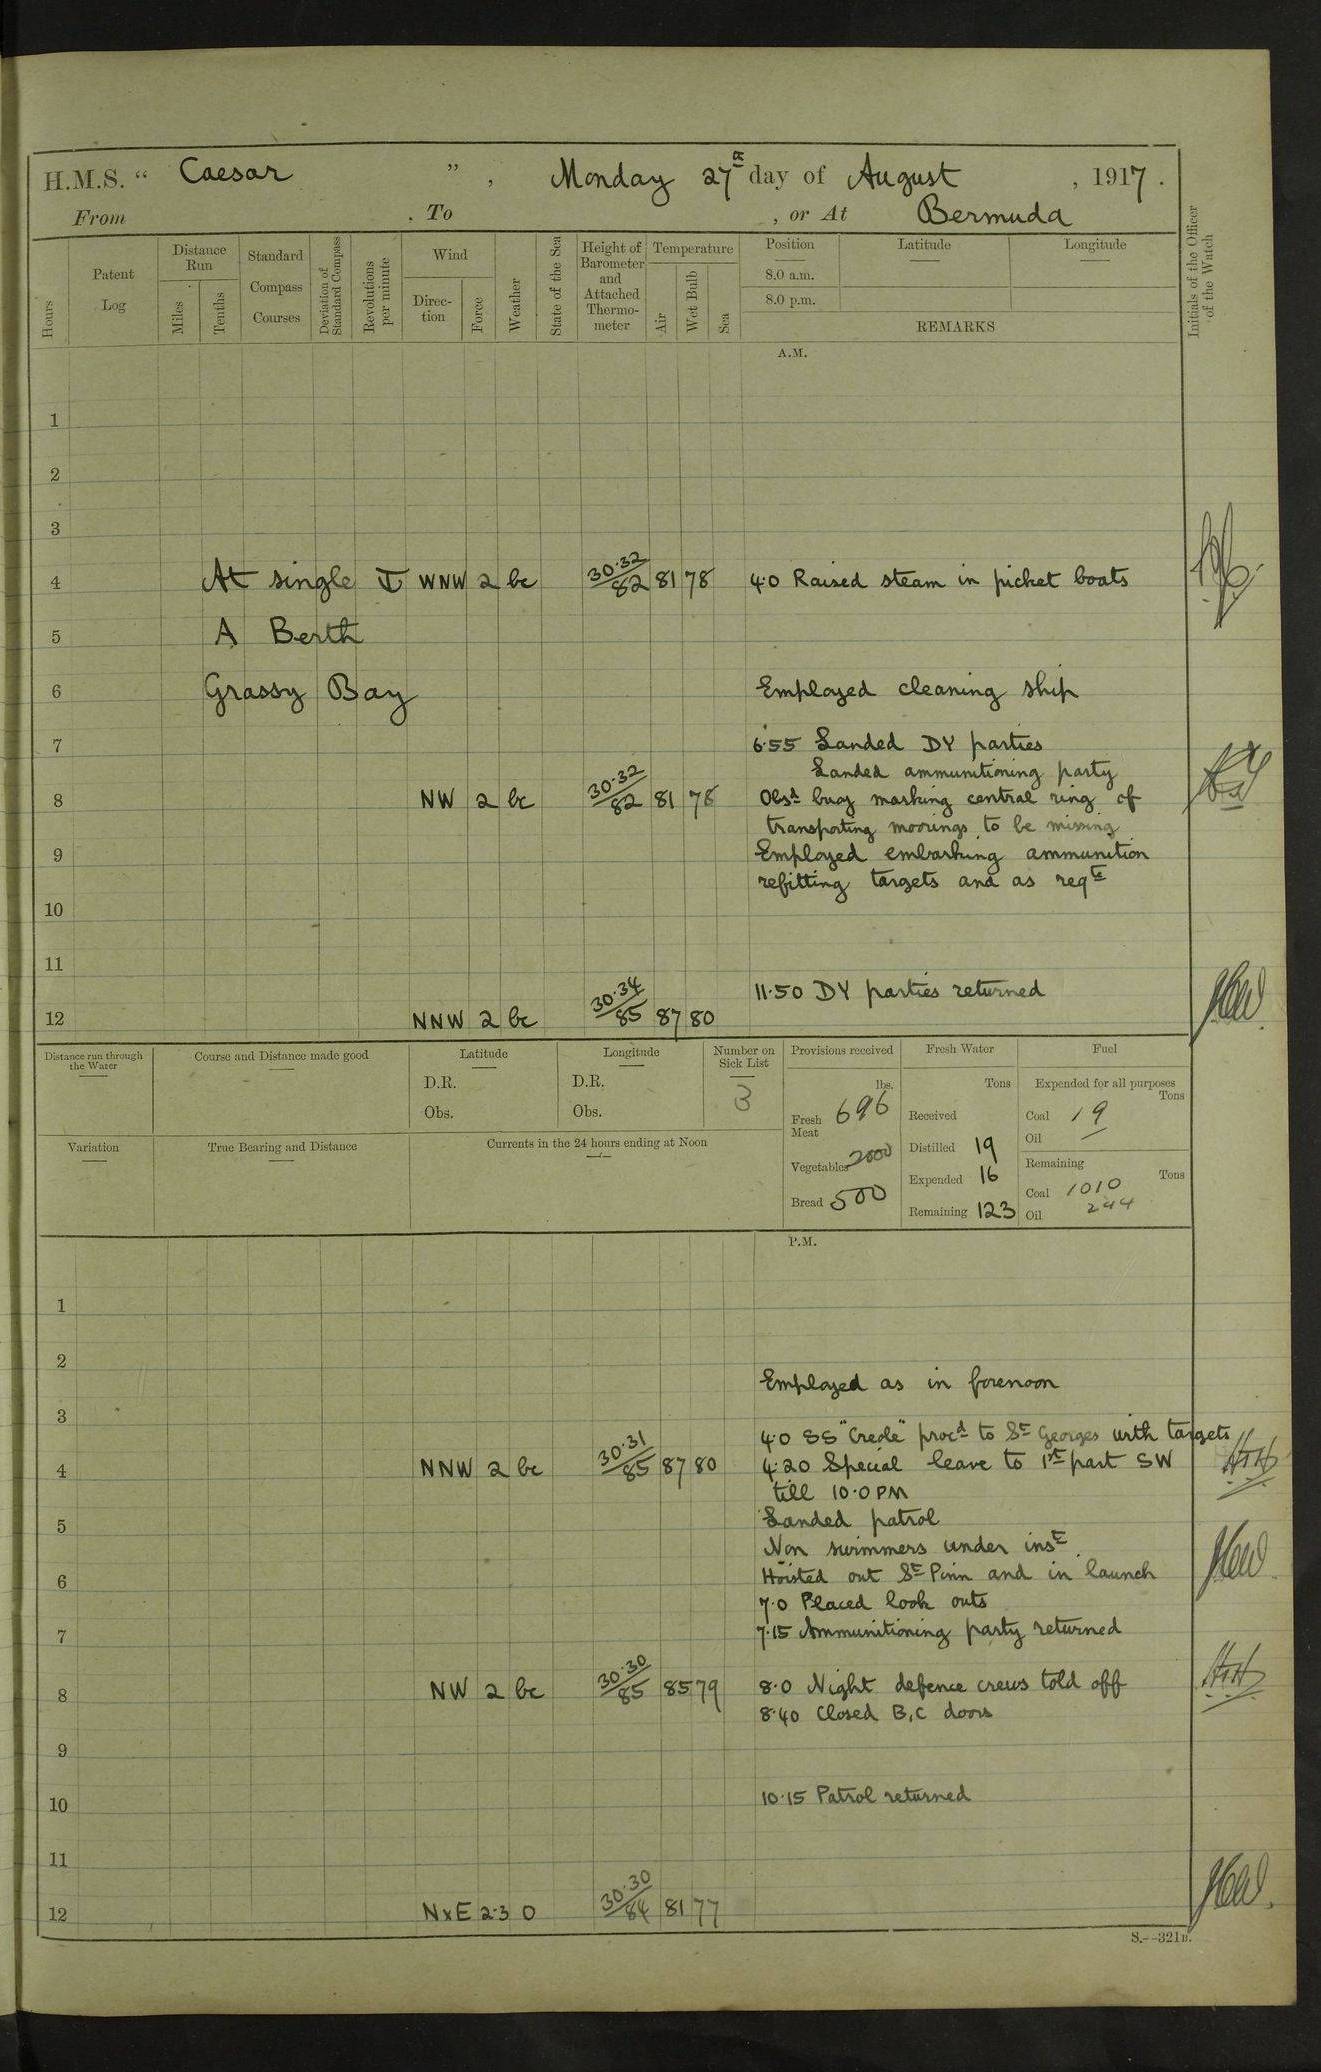 H.M.S. “ Caesar ” , Monday 27th day of August , 1917 .
From . To , or At Bermuda
Hours
Patent Log
Distance Run
Miles
Tenths
Standard Compass Courses
Deviation of Standard Compass
Revolutions per minute
Wind
Direc-tion
Force
Weather
State of the Sea
Height of Barometer and Attached Thermo-meter
Temperature
Air
Wet Bulb
Sea
Position
8.0 a.m.
8.0 p.m.
Latitude
Longitude
REMARKS
Initials of the Officer of the Watch
A.M.
1
2
3
4 At single ⚓ WNW 2 bc 30.32/82 81 78 4.0 Raised steam in picket boats
5 A Berth
6 Grassy Bay Employed cleaning ship
7 6.55 Landed DY parties
Landed ammunitioning party
8 NW 2 bc 30.32/82 81 78 Obsd buoy marking central ring of
transporting moorings to be missing
9 Employed embarking ammunition
refitting targets and as reqte
10
11
11.50 DY parties returned
12 NNW 2 bc 30.34/85 87 80
Distance run through the Water
Course and Distance made good
Latitude
D.R.
Obs.
Longitude
D.R.
Obs.
Number on Sick List
3
Provisions received
lbs.
Fresh Meat 696
Vegetables 2000
Bread 500
Fresh Water
Tons
Received
Distilled 19
Expended 16
Remaining 123
Fuel
Expended for all purposes
Tons
Coal 19
Oil —
Remaining
Tons
Coal 1010
Oil 244
Variation
True Bearing and Distance
Currents in the 24 hours ending at Noon
P.M.
1
2
Employed as in forenoon
3
4.0 SS "Creole" procd to St Georges with targets
4 NNW 2 bc 30.31/85 87 80 4.20 Special leave to 1st part SW
till 10.0 PM
5 Landed patrol
Non swimmers under inst
6 Hoisted out St Pinn and in launch
7.0 Placed look outs
7 7.15 Ammunitioning party returned
8 NW 2 bc 30.30/85 85 79 8.0 Night defence crews told off
8.40 Closed B, C doors
9
10 10.15 Patrol returned
11
12 NxE 2.3 0 30.30/84 81 77
S.—321B.